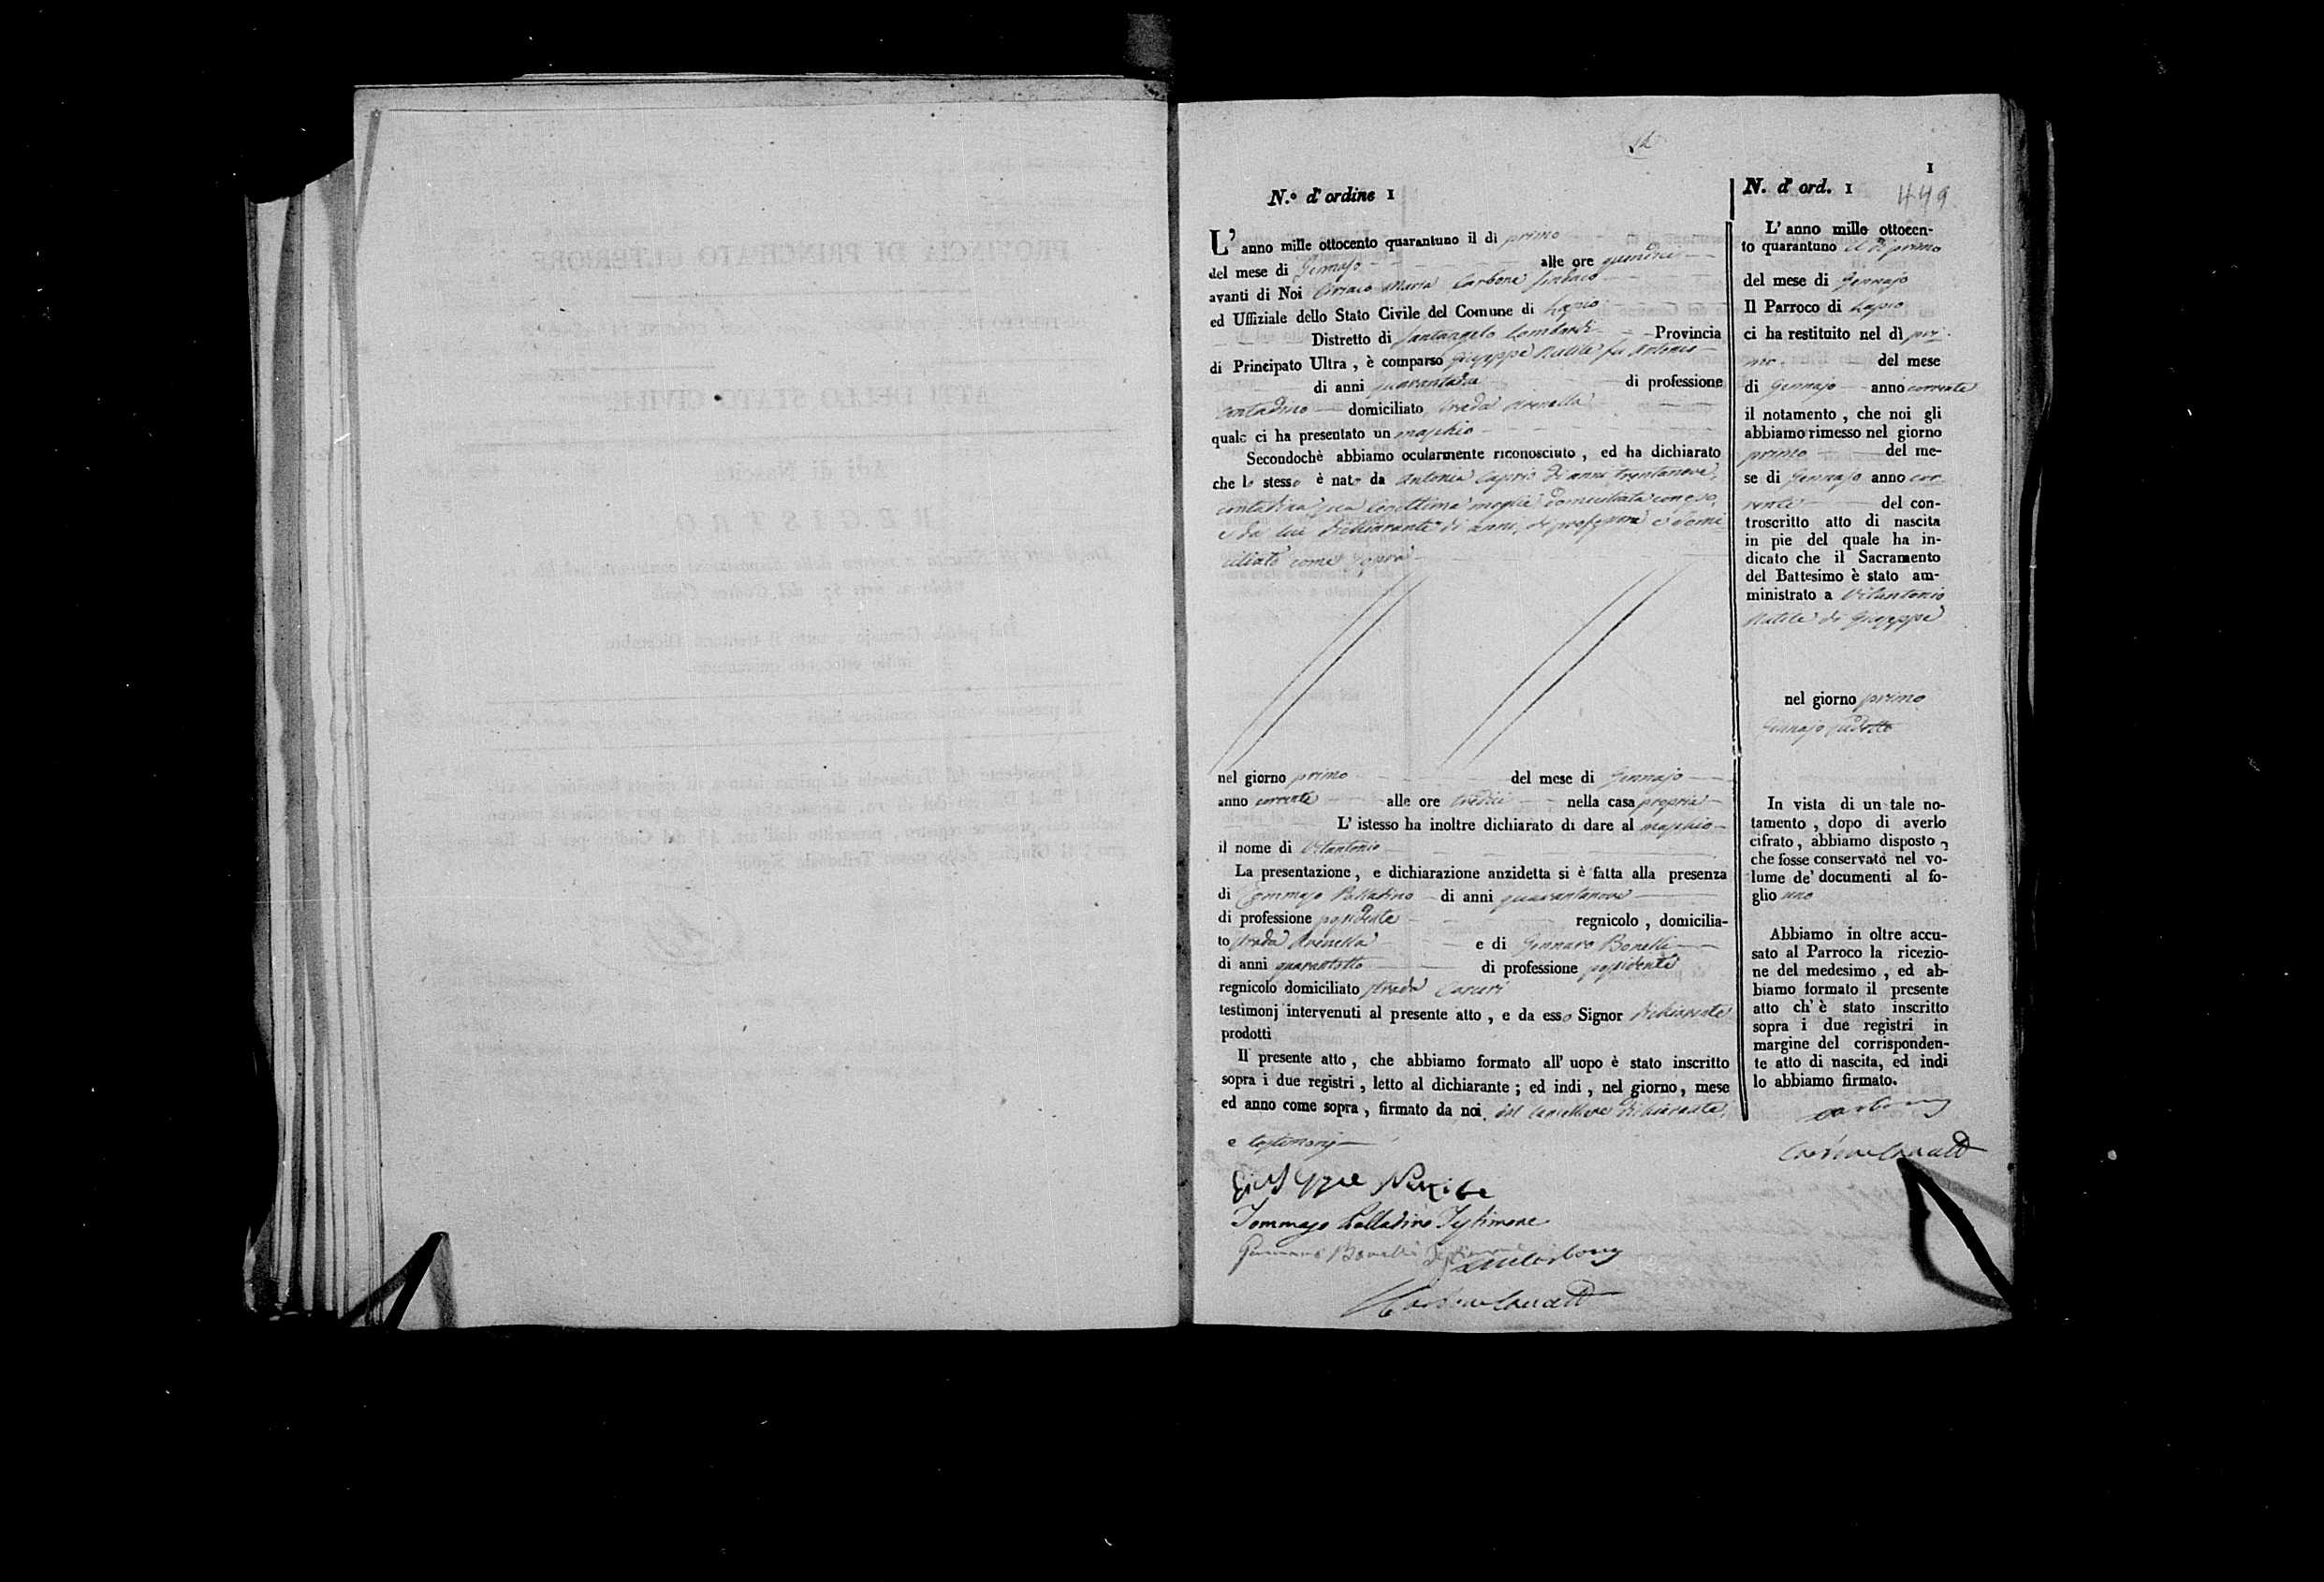 1
N.º d'ordine 1
L'anno mille ottocento quarantuno il di primo
del mese di Gennajo alle ore quindici
avanti di Noi Ciriaco Maria Carbone Sindaco
ed Uffiziale dello Stato Civile del Comune di Lapio
Distretto di Santangelo Lombardi Provincia
di Principato Ultra, è comparso Giuseppe Natile fu Antonio
di anni di professione
contadino domiciliato strada Arenella
quale ci ha presentato un maschio
Secondochè abbiamo ocularmente riconosciuto, ed ha dichiarato
che lo stesso è nato da Antonia Caprio di anni trentanove,
contadina sua legittima moglie domiciliata con esso,
e da lui dichiarante di anni, di professione e domi
ciliato come sopra
nel giorno primo del mese di Gennajo
anno corrente alle ore tredici nella casa propria
L'istesso ha inoltre dichiarato di dare al maschio
il nome di Vitantonio
La presentazione, e dichiarazione anzidetta si è fatta alla presenza
di Tommaso Palladino di anni quarantanove
di professione possidente regnicolo, domicilia-
to strada Arenella e di Gennaro Bonelli
di anni quarantotto di professione possidente
regnicolo domiciliato strada Carceri
testimonj intervenuti al presente atto, e da esso Signor dichiarante
prodotti
Il presente atto, che abbiamo formato all' uopo è stato inscritto
sopra i due registri, letto al dichiarante; ed indi, nel giorno, mese
ed anno come sopra, firmato da noi, dal Cancelliere dichiarante,
e testimonj
Giuseppe Natile
Tommaso Palladino Testimone
Gennaro Bonelli Testimone
N. d' ord. 1
449
L'anno mille ottocen-
to quarantuno il dì primo
del mese di Gennajo
Il Parroco di Lapio
ci ha restituito nel dì pri-
mo del mese
di Gennajo anno corrente
il notamento, che noi gli
abbiamo rimesso nel giorno
primo del me-
se di Gennajo anno cor-
rente del con-
troscritto atto di nascita
in pie del quale ha in-
dicato che il Sacramento
del Battesimo è stato am-
ministrato a Vitantonio
Natile di Giuseppe
nel giorno primo
Gennajo suddetto
In vista di un tale no-
tamento, dopo di averlo
cifrato, abbiamo disposto,
che fosse conservato nel vo-
lume de' documenti al fo-
glio uno
Abbiamo in oltre accu-
sato al Parroco la ricezio-
ne del medesimo, ed ab-
biamo formato il presente
atto ch' è stato inscritto
sopra i due registri in
margine del corrisponden-
te atto di nascita, ed indi
lo abbiamo firmato.
Carbone